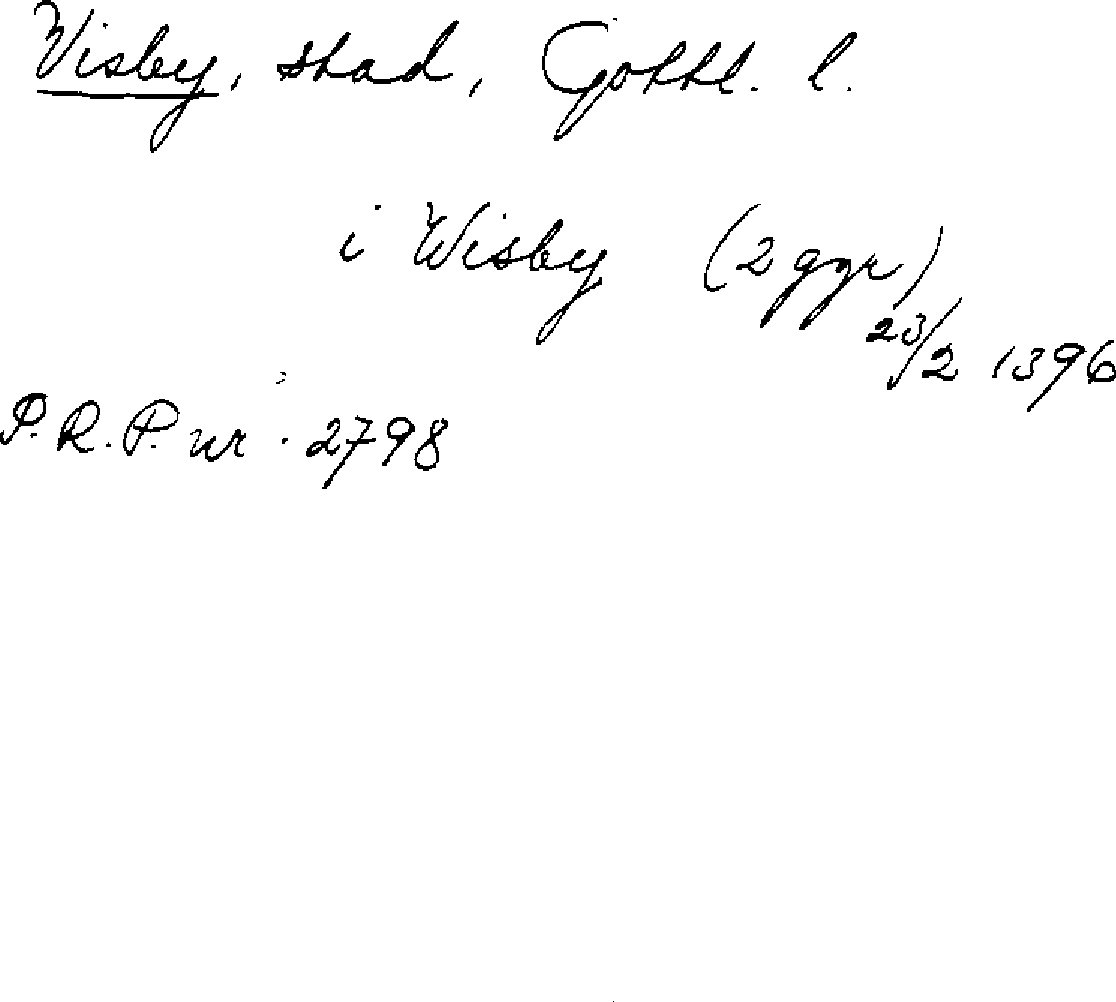 Visby, stad, Gottl. l.
i Wisby (2 ggr)
23/2 1396
P.R.P. nr. 2798